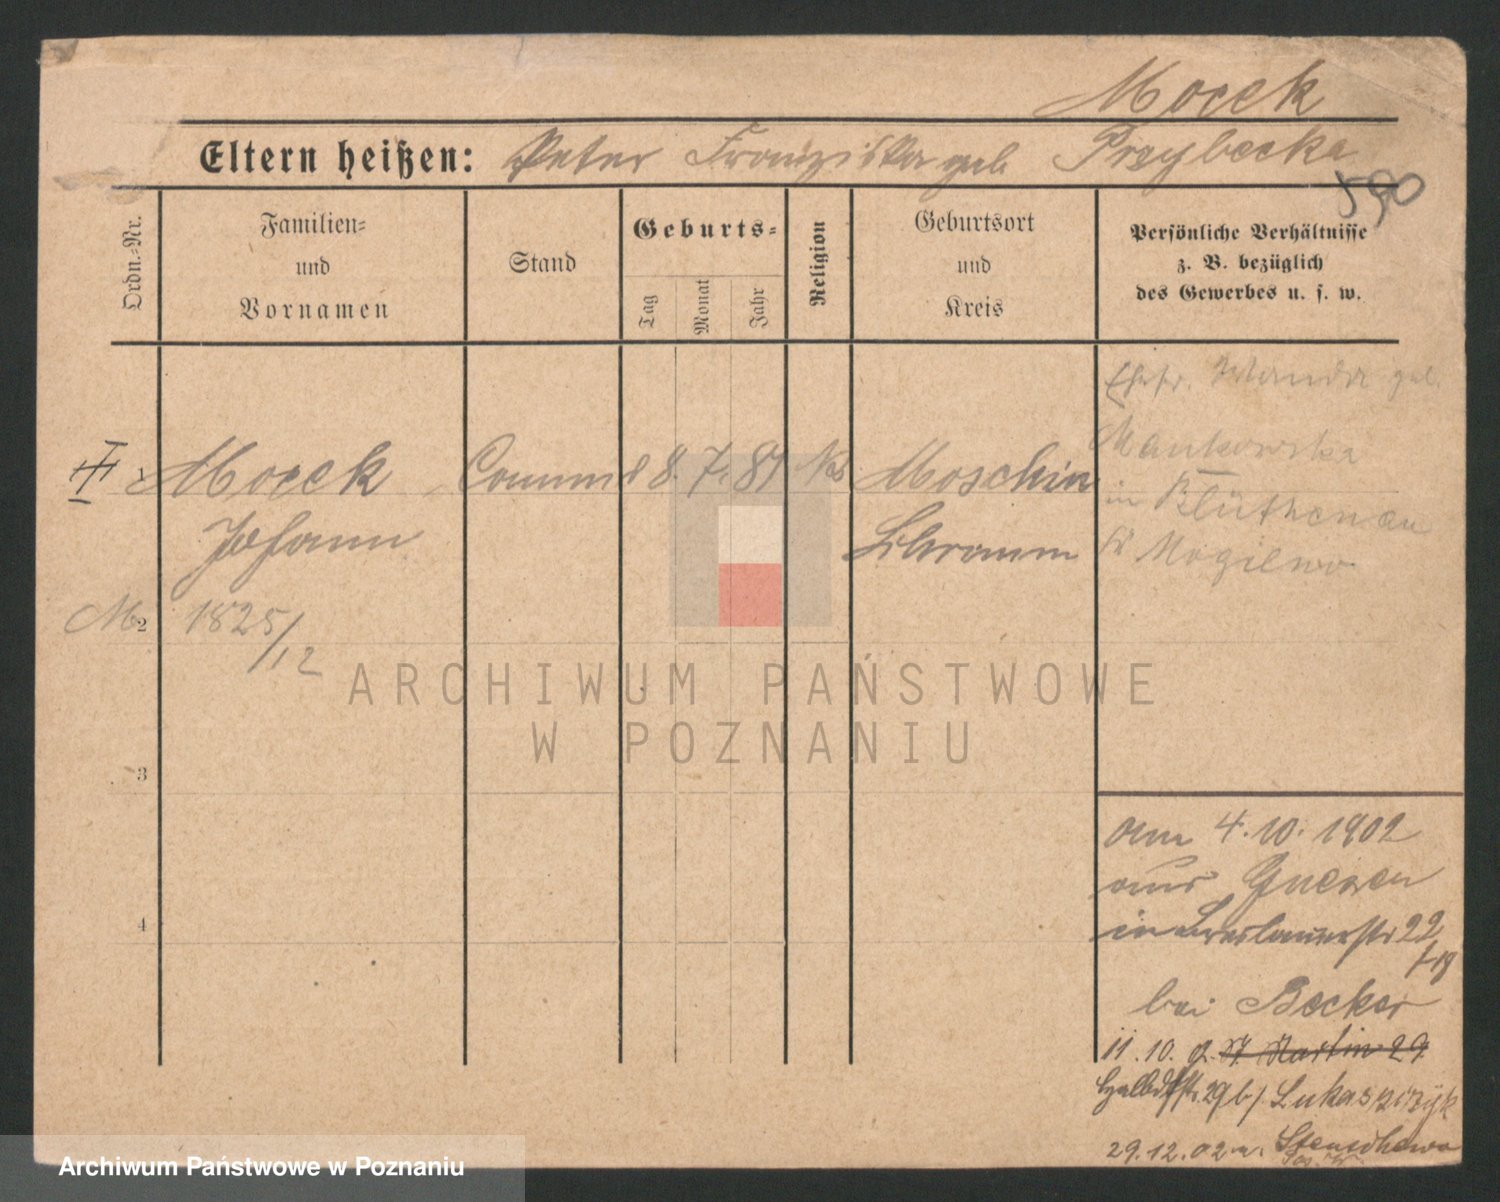 Mocek
Eltern heißen: Peter Franziska geb Przybecka
590
Ordn.-Nr.
Familien-
und
Vornamen
Stand
Geburts-
Tag
Monat
Jahr
Religion
Geburtsort
und
Kreis
Persönliche Verhältnisse
z. B. bezüglich
des Gewerbes u. s. w.
Ehefr. Wanda geb.
Mankowska
in Blüthenau
Kr Mogilno
1 Mocek Comm 8. 7. 81 Moschin
Johann Schrimm
M 2 1825/12
3
4
am 4.10.1902
aus Gnesen
in Breslauerstr 22
bei Becker
11.10. St. Martin 29
Halbdfstr. 29b/ Lukaszczyk
29.12.02 n.
ARCHIWUM PAŃSTWOWE
W POZNANIU
Archiwum Państwowe w Poznaniu